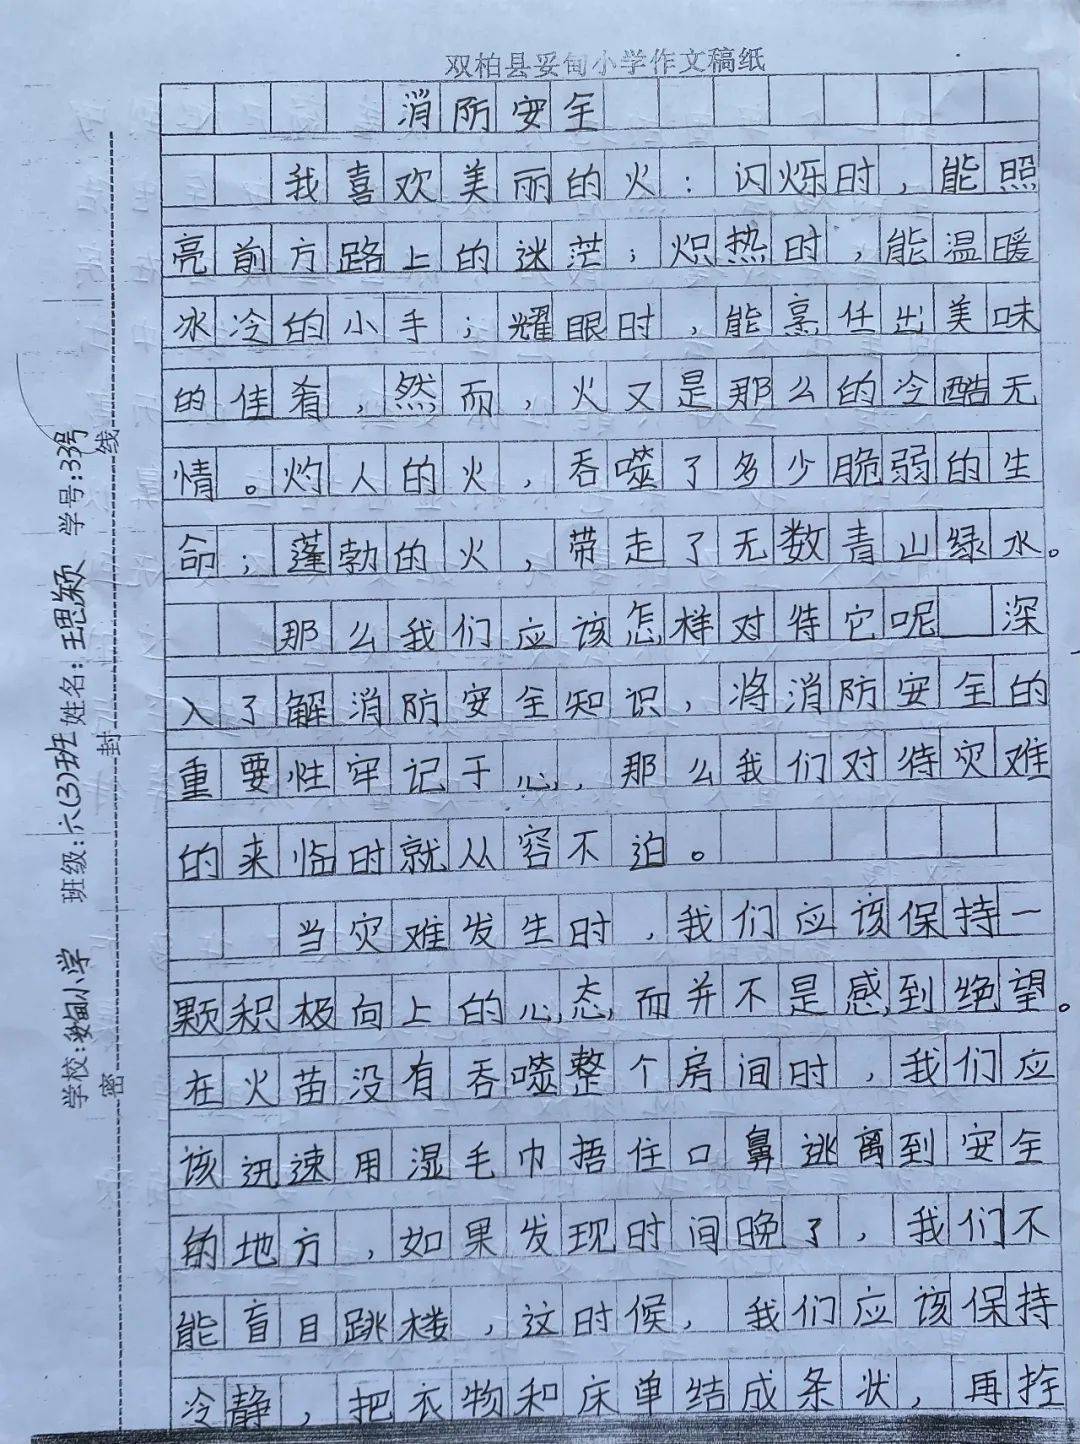 双柏县妥甸小学作文稿纸
消防安全
我喜欢美丽的火：闪烁时，能照
亮前方路上的迷茫；炽热时，能温暖
冰冷的小手；耀眼时，能烹任出美味
的佳肴，然而，火又是那么的冷酷无
情。灼人的火，吞噬了多少脆弱的生
命；蓬勃的火，带走了无数青山绿水。
那么我们应该怎样对待它呢 深
入了解消防安全知识，将消防安全的
重要性牢记于心，那么我们对待灾难
的来临时就从容不迫。
当灾难发生时，我们应该保持一
颗积极向上的心态，而并不是感到绝望。
在火苗没有吞噬整个房间时，我们应
该迅速用湿毛巾捂住口鼻逃离到安全
的地方，如果发现时间晚了，我们不
能盲目跳楼，这时候，我们应该保持
冷静，把衣物和床单结成条状，再拴
学校：妥甸小学 班级：六(3)班 姓名：王思颖 学号：33号
密 封 线